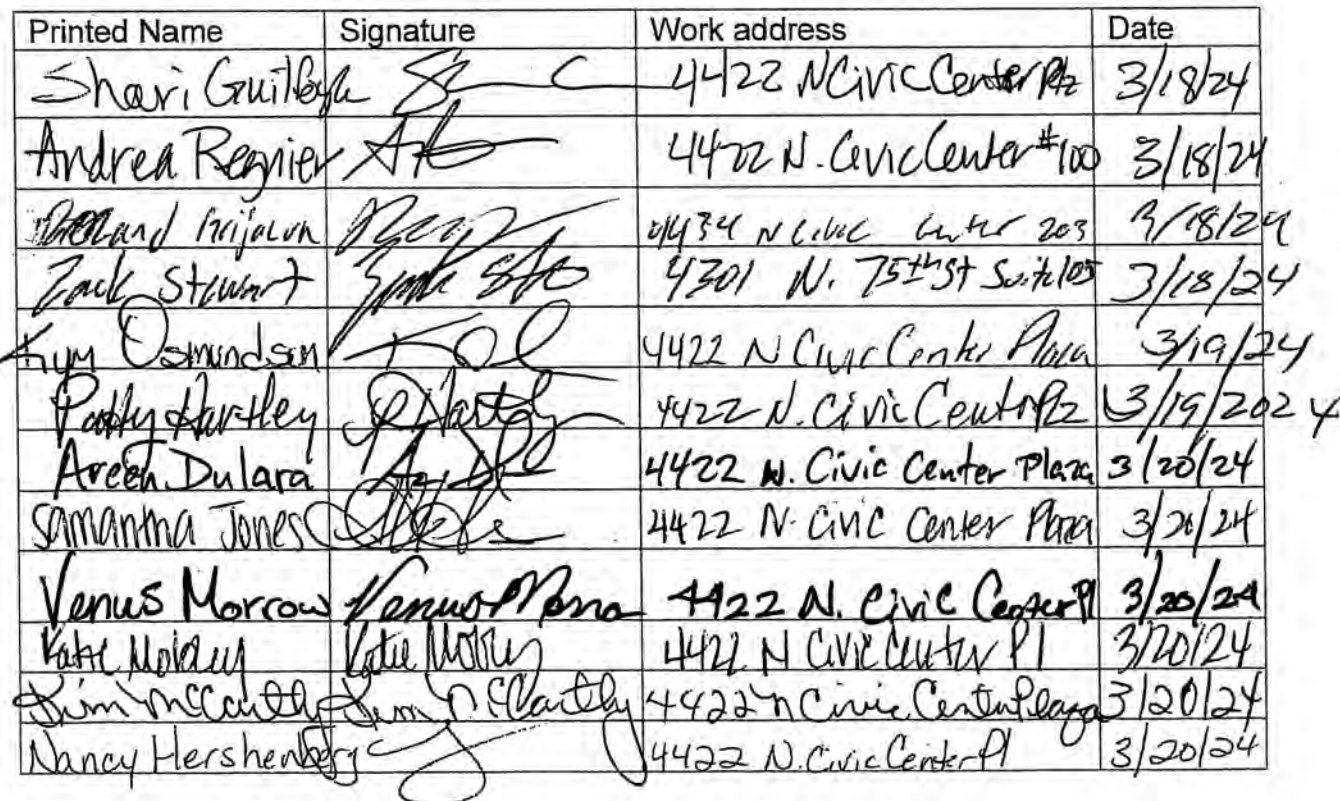 Printed Name Signature Work address Date
Shari 4422 N Civic Center Plz 3/18/24
Andrea Regnier 4422 N. Civic Center #100 3/18/24
4434 N Civic Center 203 3/18/24
Zack Stewart 4301 N. 75th St Suite 105 3/18/24
Kym Osmundson 4422 N Civic Center Plaza 3/19/24
Patty Hartley Hartley 4422 N. Civic Center Plz 3/19/2024
Areen Dulara 4422 N. Civic Center Plaza 3/20/24
Samantha Jones 4422 N. Civic Center Plaza 3/20/24
Venus Morrow Venus 4422 N. Civic Center Pl 3/20/24
Katie Katie 4422 N Civic Center Pl 3/20/24
Kim McCarthy Kim McCarthy 4422 N Civic Center Plaza 3/20/24
Nancy Hershenberg 4422 N. Civic Center Pl 3/20/24